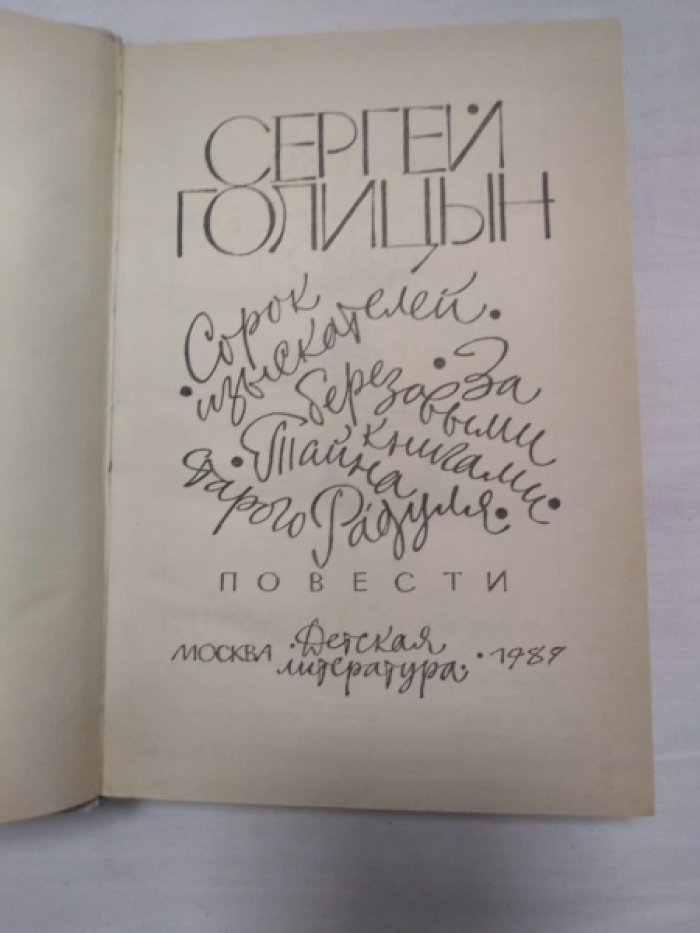 СЕРГЕЙ
ГОЛИЦЫН
Сорок
изыскателей.
За
березовыми
книгами.
Тайна
старого Радуля.
ПОВЕСТИ
МОСКВА · Детская
литература · 1989